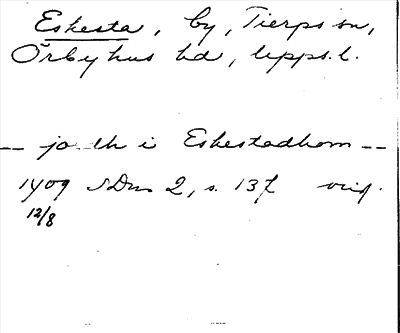 Eskesta, by, Tierps sn,
Örbyhus hd, Upps. l.
-- jo_th i Eskestadhom --
1409 SDns 2, s. 137 orig.
12/8